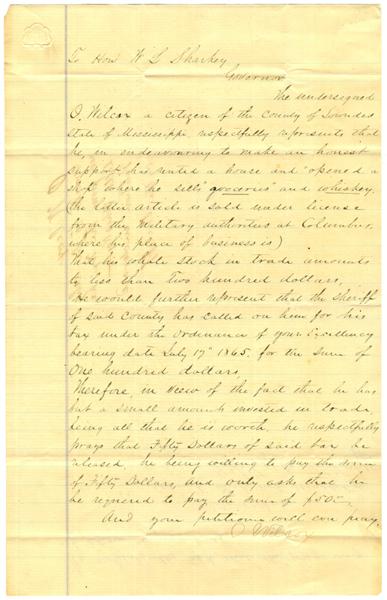 To Hon W L Sharkey
Governor
The undersigned
O. Wilcox a citizen of the County of Lowndes
State of Mississippi, respectfully represents that
he, in endeavouring to make an honest
support, has rented a house and opened a
shop where he sells "groceries" and whiskey.
(the latter article is sold under license
from the Military authorities at Columbus,
where his place of business is)
That his whole stock in trade amounts
to less than Two hundred dollars,
He would further represent that the Sheriff
of said County has called on him for his
tax under the Ordinance of your Excellency
bearing date July 17" 1865, for the sum of
One hundred dollars,
Therefore, in view of the fact that he has
but a small amount invested in trade,
being all that he is worth, he respectfully
prays that Fifty Dollars of said tax be
released, he being willing to pay the sum
of Fifty Dollars, and only asks that he
be required to pay the sum of $50-
And your petitioner will ever pray,
O Wilcox